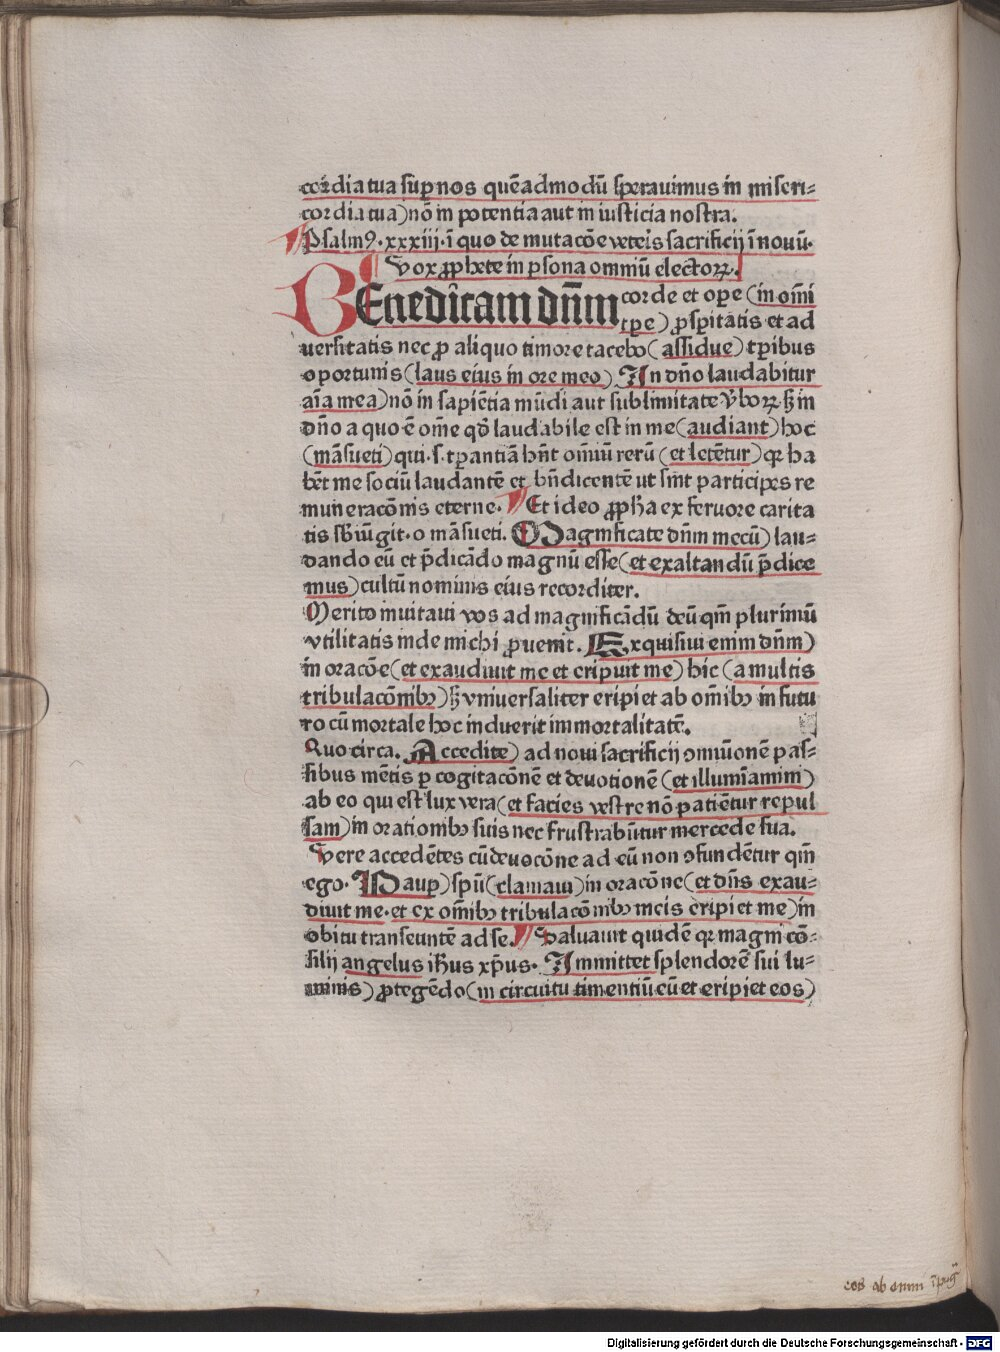 cordia tua suꝑ nos quēadmodū sperauimus in miseri⸗
cordia tua) nō in potentia aut in iusticia nostra.
Psalmꝰ. xxxiii. ī quo de mutacōe veteris sacrificij ī nouū.
Vox ꝓphete in ꝑsona omniū electoꝝ.
BEnedicam dn̄m corde et oꝑe (in om̄i
tꝑe) ꝓsꝑitatis et ad
uersitatis nec ꝓ aliquo timore tacebo (assidue) tꝑibus
oportunis (laus eius in ore meo) In dn̄o laudabitur
aīa mea) nō in sapiētia mūdi aut sublimitate v̄boꝝ. sꝫ in
dn̄o a quo ē om̄e qd̄ laudabile est in me (audiant) hoc
(māsueti) qui .s. tꝑantiā hn̄t om̄iū rerū (et letētur) qꝛ ha
bēt me sociū laudantē et bn̄dicentē ut sint participes re
muneracōnis eterne. Et ideo ꝓpħa ex feruore carita
tis sb̄iūgit. o māsueti. Magnificate dn̄m mecū) lau⸗
dando eū et p̄dicādo magnū esse (et exaltandū p̄dice
mus) cultū nominis eius recorditer.
Merito inuitaui vos ad magnificādū deū qm̄ plurimū
vtilitatis inde michi ꝓuenit. Exquisiui enim dn̄m)
in oracōe (et exaudiuit me et eripuit me) hic (a multis
tribulacōnibꝫ) sꝫ vniuersaliter eripiet ab om̄ibꝫ in futu
ro cū mortale hoc induerit immortalitatē.
Quocirca. Accedite) ad noui sacrificij ꝯmūonē pas⸗
sibus mētis ꝑ cogitacōnē et deuotionē (et illumīamini)
ab eo qui est lux vera (et facies vestre nō patiētur repul
sam) in orationibꝫ suis nec frustrabūtur mercede sua.
Vere accedētes cū deuocōne ad eū non ꝯfundētur qm̄
ego. Pauꝑ) spū (clamaui) in oracōne (et dn̄s exau⸗
diuit me. et ex om̄ibꝫ tribulacōnibꝫ meis eripiet me) in
obitu transeuntē ad se. Saluauit quidē qꝛ magni cō⸗
silij angelus iħus xp̄us. Immittet splendorē sui lu⸗
minis) ꝓtegēdo (in circuitu timentiū eū et eripiet eos)
eos ab omni
Digitalisierung gefördert durch die Deutsche Forschungsgemeinschaft - DFG